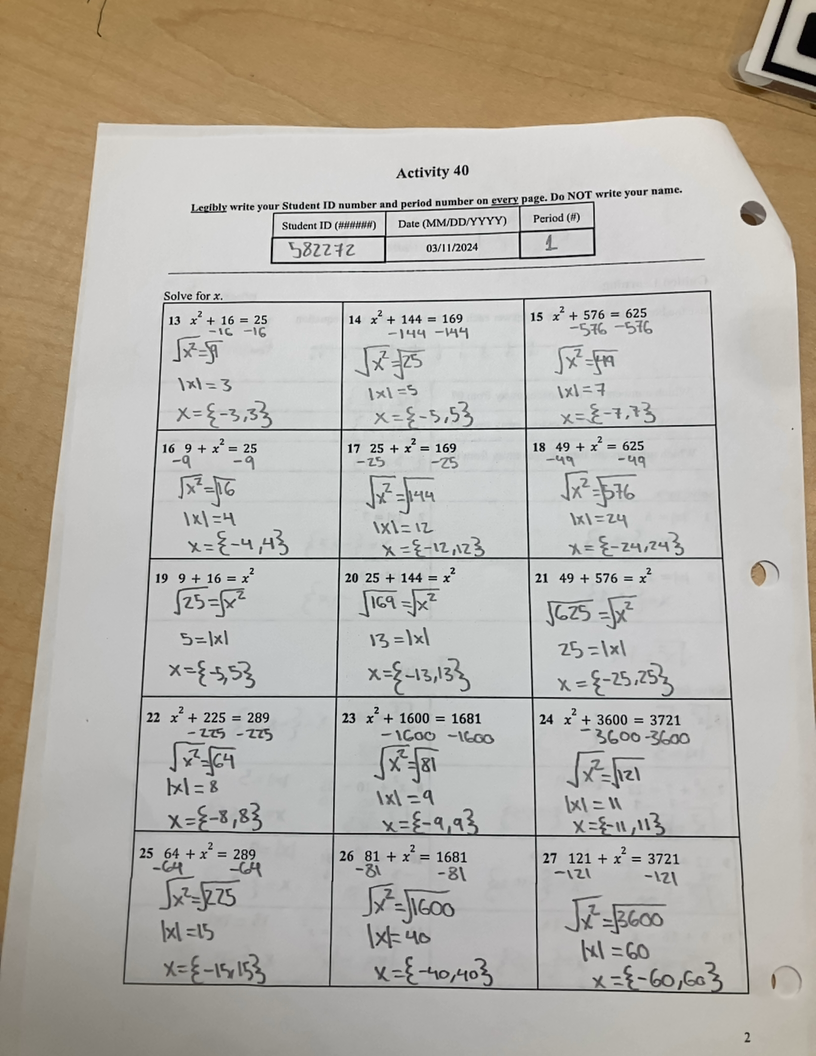 Activity 40
Legibly write your Student ID number and period number on every page. Do NOT write your name.
Student ID (######) Date (MM/DD/YYYY) Period (#)
582272 03/11/2024 1
Solve for x.
13 x² + 16 = 25
-16 -16
√x²=√9
|x|=3
x={-3,3}
14 x² + 144 = 169
-144 -144
√x²=√25
|x|=5
x={-5,5}
15 x² + 576 = 625
-576 -576
√x²=√49
|x|=7
x={-7,7}
16 9 + x² = 25
-9 -9
√x²=√16
|x|=4
x={-4,4}
17 25 + x² = 169
-25 -25
√x²=√144
|x|=12
x={-12,12}
18 49 + x² = 625
-49 -49
√x²=√576
|x|=24
x={-24,24}
19 9 + 16 = x²
√25=√x²
5=|x|
x={-5,5}
20 25 + 144 = x²
√169=√x²
13=|x|
x={-13,13}
21 49 + 576 = x²
√625=√x²
25=|x|
x={-25,25}
22 x² + 225 = 289
-225 -225
√x²=√64
|x|=8
x={-8,8}
23 x² + 1600 = 1681
-1600 -1600
√x²=√81
|x|=9
x={-9,9}
24 x² + 3600 = 3721
-3600 -3600
√x²=√121
|x|=11
x={-11,11}
25 64 + x² = 289
-64 -64
√x²=√225
|x|=15
x={-15,15}
26 81 + x² = 1681
-81 -81
√x²=√1600
|x|=40
x={-40,40}
27 121 + x² = 3721
-121 -121
√x²=√3600
|x|=60
x={-60,60}
2